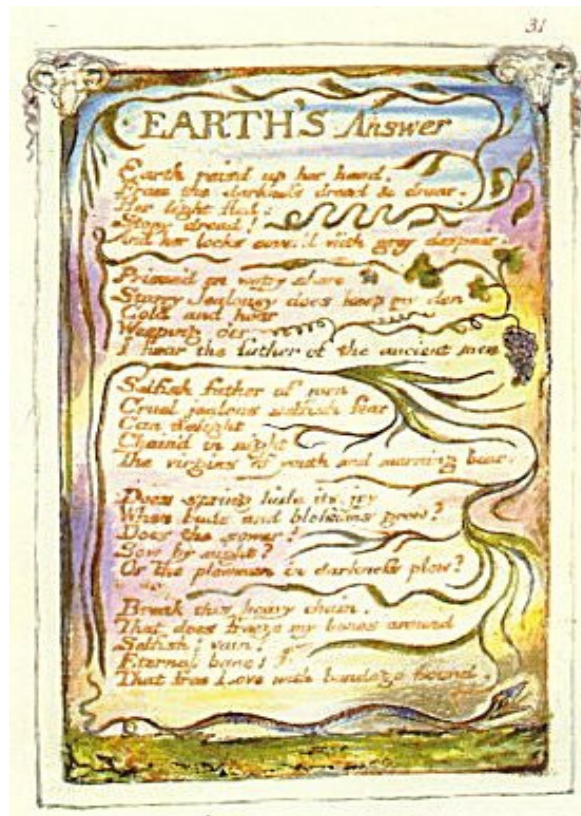 31
EARTH'S Answer
Earth rais'd up her head,
From the darkness dread & drear.
Her light fled:
Stony dread!
And her locks cover'd with grey despair.
Prison'd on watry shore
Starry Jealousy does keep my den
Cold and hoar
Weeping o'er
I hear the father of the ancient men
Selfish father of men
Cruel jealous selfish fear
Can delight
Chain'd in night
The virgins of youth and morning bear.
Does spring hide its joy
When buds and blossoms grow?
Does the sower?
Sow by night?
Or the plowman in darkness plow?
Break this heavy chain.
That does freeze my bones around
Selfish! vain!
Eternal bane!
That free Love with bondage bound.